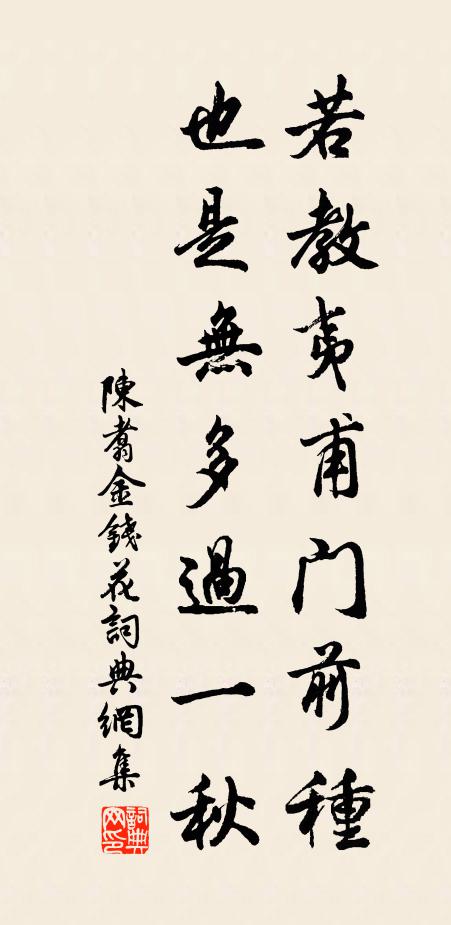 若教夷甫门前種
也是無多過一秋
陳翥金錢花詞典網集
詞典网印